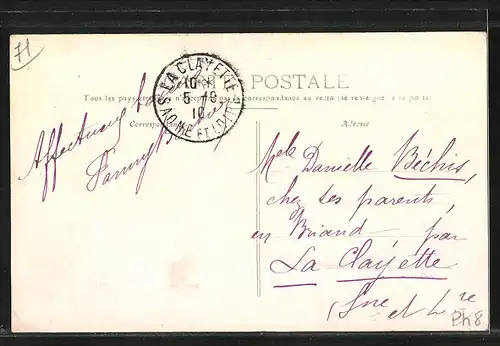 71
POSTALE
Tous les pays
la correspondance au
Correspondance
Adresse
LA CLAYETTE
5-10
10
SAONE ET LOIRE
Affectueux
Fanny
Melle Danielle Béchis,
chez ses parents,
en Briand par
La Clayette
Sne et Lre
Ph8